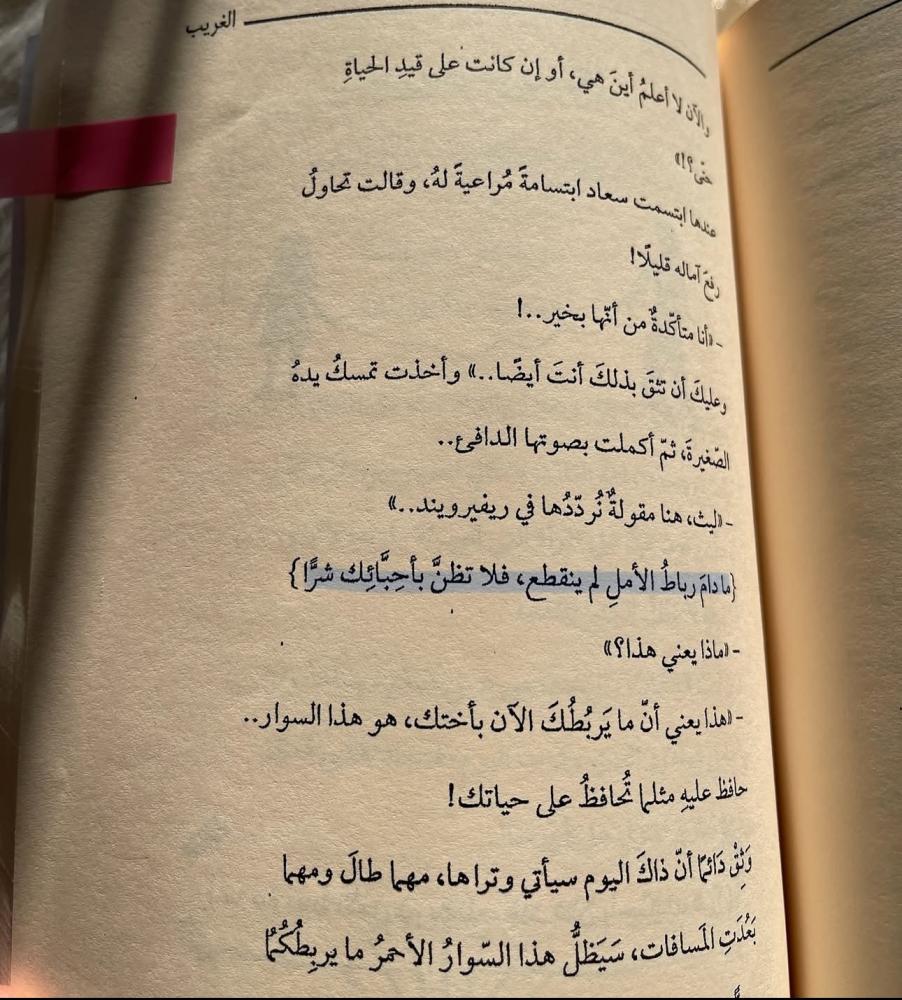 الغريب
والآن لا أعلمُ أينَ هي، أو إن كانت على قيدِ الحياةِ
حتّى؟!»
عندها ابتسمت سعاد ابتسامةً مُراعيةً لهُ، وقالت تحاولُ
رفعَ آماله قليلًا!
- «أنا متأكّدةٌ من أنّها بخير..!
وعليكَ أن تثقَ بذلكَ أنتَ أيضًا..» وأخذت تمسكُ يدهُ
الصّغيرةَ، ثمّ أكملت بصوتها الدافئ..
- «ليث، هنا مقولةٌ نُردّدُها في ريفيرويند..»
{ما دامَ رباطُ الأملِ لم ينقطع، فلا تظنَّ بأحِبَّائِك شرًّا}
- «ماذا يعني هذا؟»
- «هذا يعني أنّ ما يَربُطُكَ الآن بأختك، هو هذا السوار..
حافظ عليهِ مثلما تُحافظُ على حياتك!
وَثِقْ دَائمًا أنّ ذاكَ اليوم سيأتي وتراها، مهما طالَ ومهما
بَعُدَتِ المَسافات، سَيَظلُّ هذا السّوارُ الأحمرُ ما يربِطُكُمَا